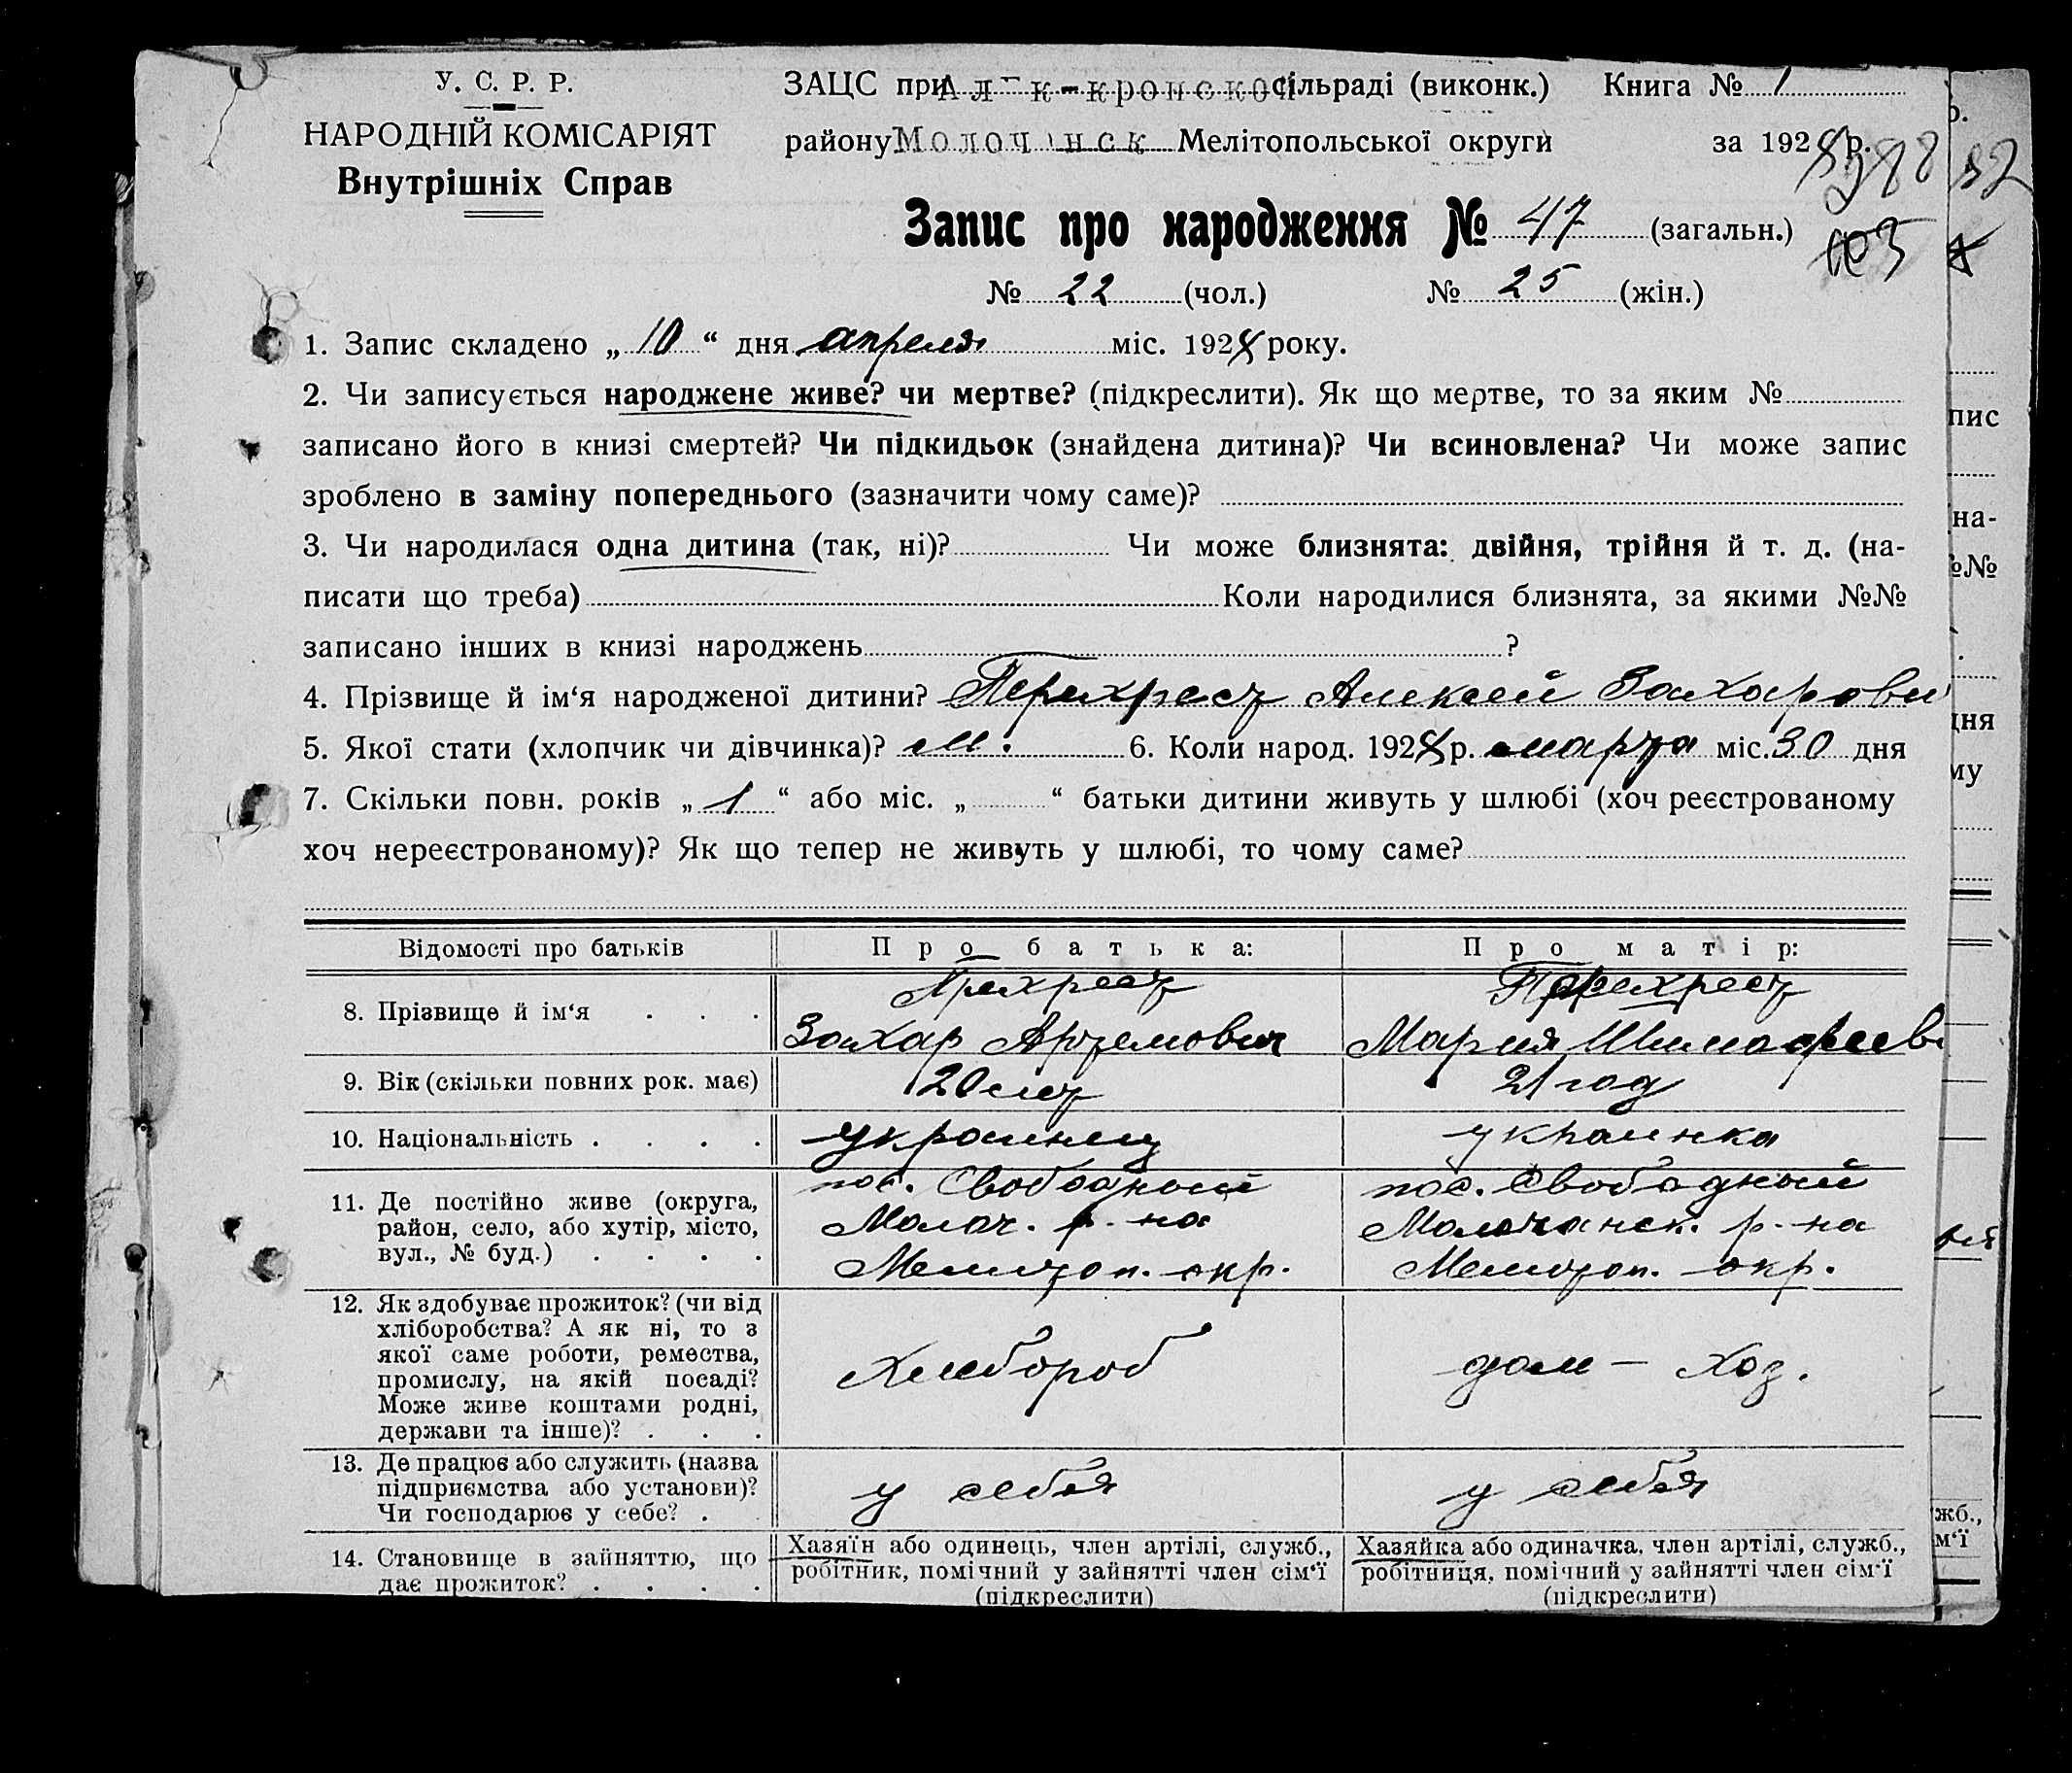 У. С. Р. Р.
НАРОДНІЙ КОМІСАРІЯТ
Внутрішніх Справ
ЗАЦС при Ал-к-кронской сільраді (виконк.) Книга № 1
району Молочанск Мелітопольської округи за 1928 р.
Запис про народження № 47 (загальн.)
№ 22 (чол.) № 25 (жін.)
1. Запис складено „ 10 “ дня апреля міс. 1928 року.
2. Чи записується народжене живе? чи мертве? (підкреслити). Як що мертве, то за яким №
записано його в книзі смертей? Чи підкидьок (знайдена дитина)? Чи всиновлена? Чи може запис
зроблено в заміну попереднього (зазначити чому саме)?
3. Чи народилася одна дитина (так, ні)? Чи може близнята: двійня, трійня й т. д. (на-
писати що треба) Коли народилися близнята, за якими №№
записано інших в книзі народжень ?
4. Прізвище й ім‘я народженої дитини? Перехрест Алексей Захарови
5. Якої стати (хлопчик чи дівчинка)? м. 6. Коли народ. 1928 р. марта міс. 30 дня
7. Скільки повн. років „ 1 “ або міс. „ “ батьки дитини живуть у шлюбі (хоч реєстрованому
хоч нереєстрованому)? Як що тепер не живуть у шлюбі, то чому саме?
Відомості про батьків
Про батька:
Про матір:
8. Прізвище й ім‘я
Прехрест
Захар Артемович
Перехрест
Мария
9. Вік (скільки повних рок. має)
20 лет
21 год
10. Національність
украинец
украинка
11. Де постійно живе (округа,
район, село, або хутір, місто,
вул., № буд.)
пос. Свободный
Молоч. р-на
Мелитоп. окр.
пос. Свободный
Молочанск. р-на
Мелитоп. окр.
12. Як здобуває прожиток? (чи від
хліборобства? А як ні, то з
якої саме роботи, ремества,
промислу, на якій посаді?
Може живе коштами родні,
держави та інше)?
Хлебороб
дом-хоз.
13. Де працює або служить (назва
підприємства або установи)?
Чи господарює у себе?
у себя
у себя
14. Становище в зайняттю, що
дає прожиток?
Хазяїн або одинець, член артілі, служб.,
робітник, помічний у зайнятті член сім‘ї
(підкреслити)
Хазяйка або одиначка, член артілі, служб.,
робітниця, помічний у зайнятті член сім‘ї
(підкреслити)